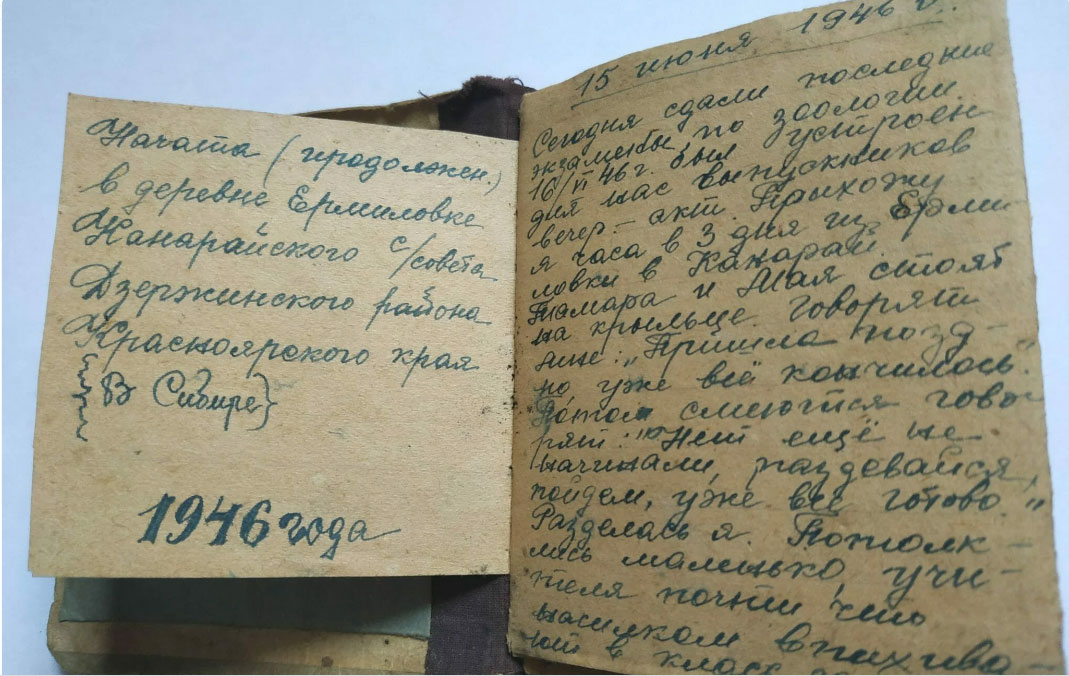 Начата (продолжен.)
в деревне Ермиловке
Канарайского с/совета
Дзержинского района
Красноярского края
{В Сибире}
1946 года
15 июня 1946 г.
Сегодня сдали последние
экзамены, по зоологии.
16/VI 46 г. был устроен
для нас выпускников
вечер – акт. Прихожу
я часа в 3 дня из Ерми-
ловки в Канарай.
Тамара и Мая стоят
на крыльце. Говорят
мне: „Пришла позд-
но, уже всё кончилось."
Потом смеются гово-
рят: "Нет ещё не
начинали, раздевайся,
пойдем, уже всё готово."
Разделась я. Потолк-
лись маленько, учи-
теля почти что
насилком впихива-
ют в класс